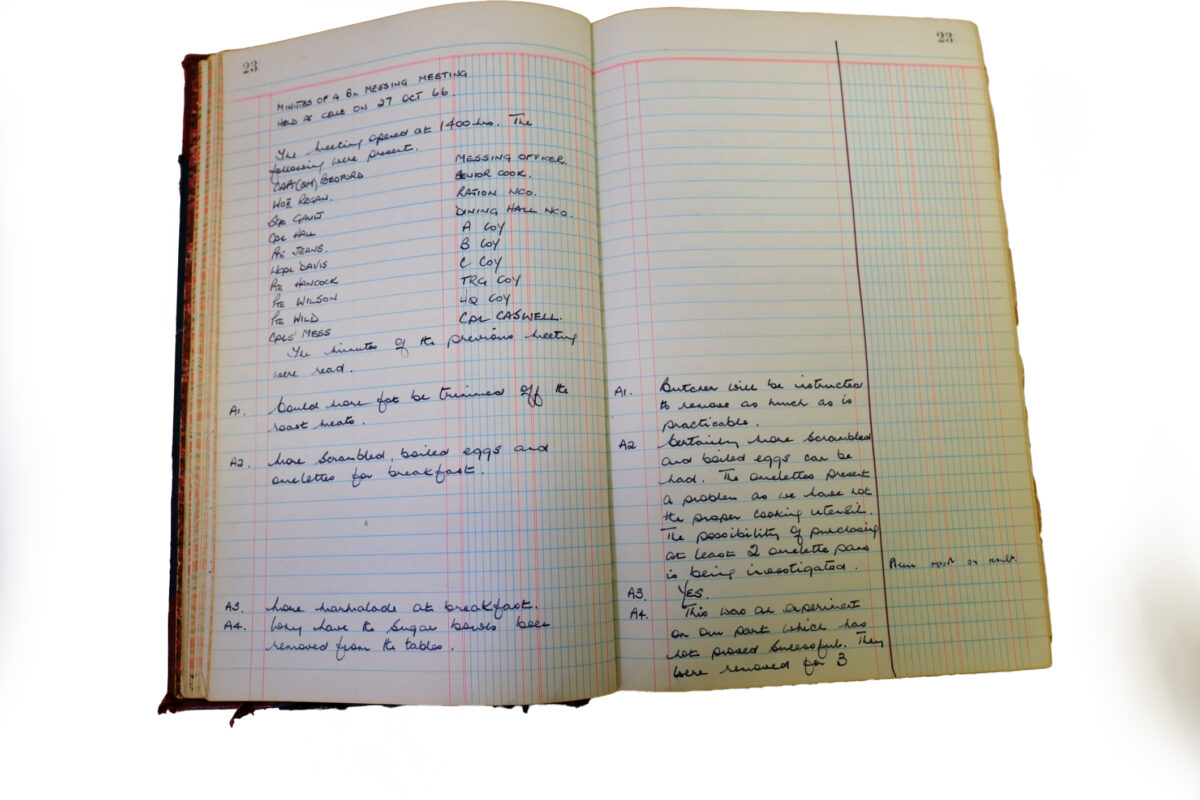 23
MINUTES OF A Bn MESSING MEETING
HELD AT ON 27 OCT 66.
The Meeting opened at 1400hrs. The
following were present.
CAPT(QM) BEDFORD MESSING OFFICER.
WOII REGAN. SENIOR COOK.
SGT GAULT RATION NCO.
CPL HALL DINING HALL NCO.
PTE JEANS. A COY
L/CPL DAVIS B COY
PTE HANCOCK C COY
PTE WILSON TRG COY
PTE WILD HQ COY
CPLS' MESS CPL CASWELL.
The minutes of the previous meeting
were read.
A1. Could more fat be trimmed off the
roast meats.
A2. More scrambled, boiled eggs and
omelettes for breakfast.
A3. More marmalade at breakfast.
A4. Why have the sugar bowls been
removed from the tables.
23
A1. Butcher will be instructed
to remove as much as is
practicable.
A2 Certainly more scrambled
and boiled eggs can be
had. The omelettes present
a problem as we have not
the proper cooking utensil.
The possibility of purchasing
at least 2 omelette pans
is being investigated. Please report on result.
A3. YES.
A4. This was an experiment
on our part which has
not proved successful. They
were removed for 3